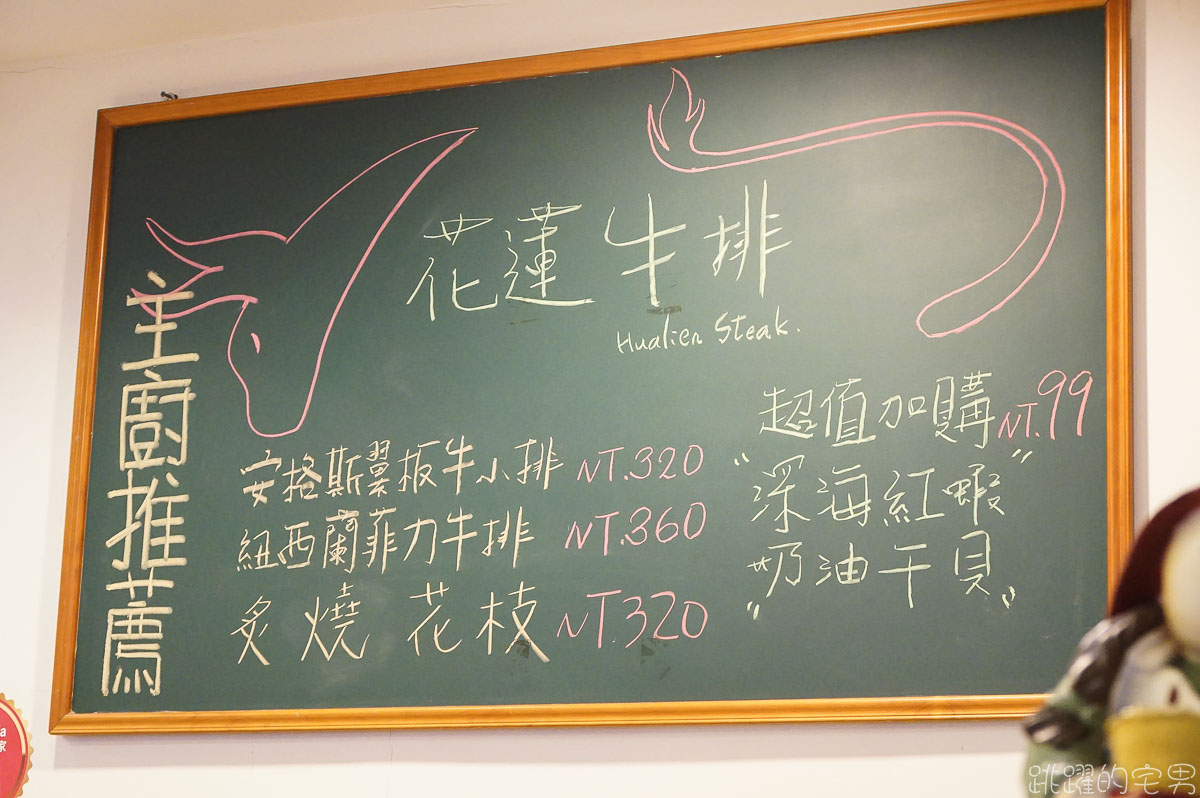 花蓮牛排
Hualien Steak.
主廚推薦
安格斯翼板牛小排 NT.320
紐西蘭菲力牛排 NT.360
炙燒花枝 NT.320
超值加購 NT.99
"深海紅蝦"
"奶油干貝"
a
家
跳躍的宅男